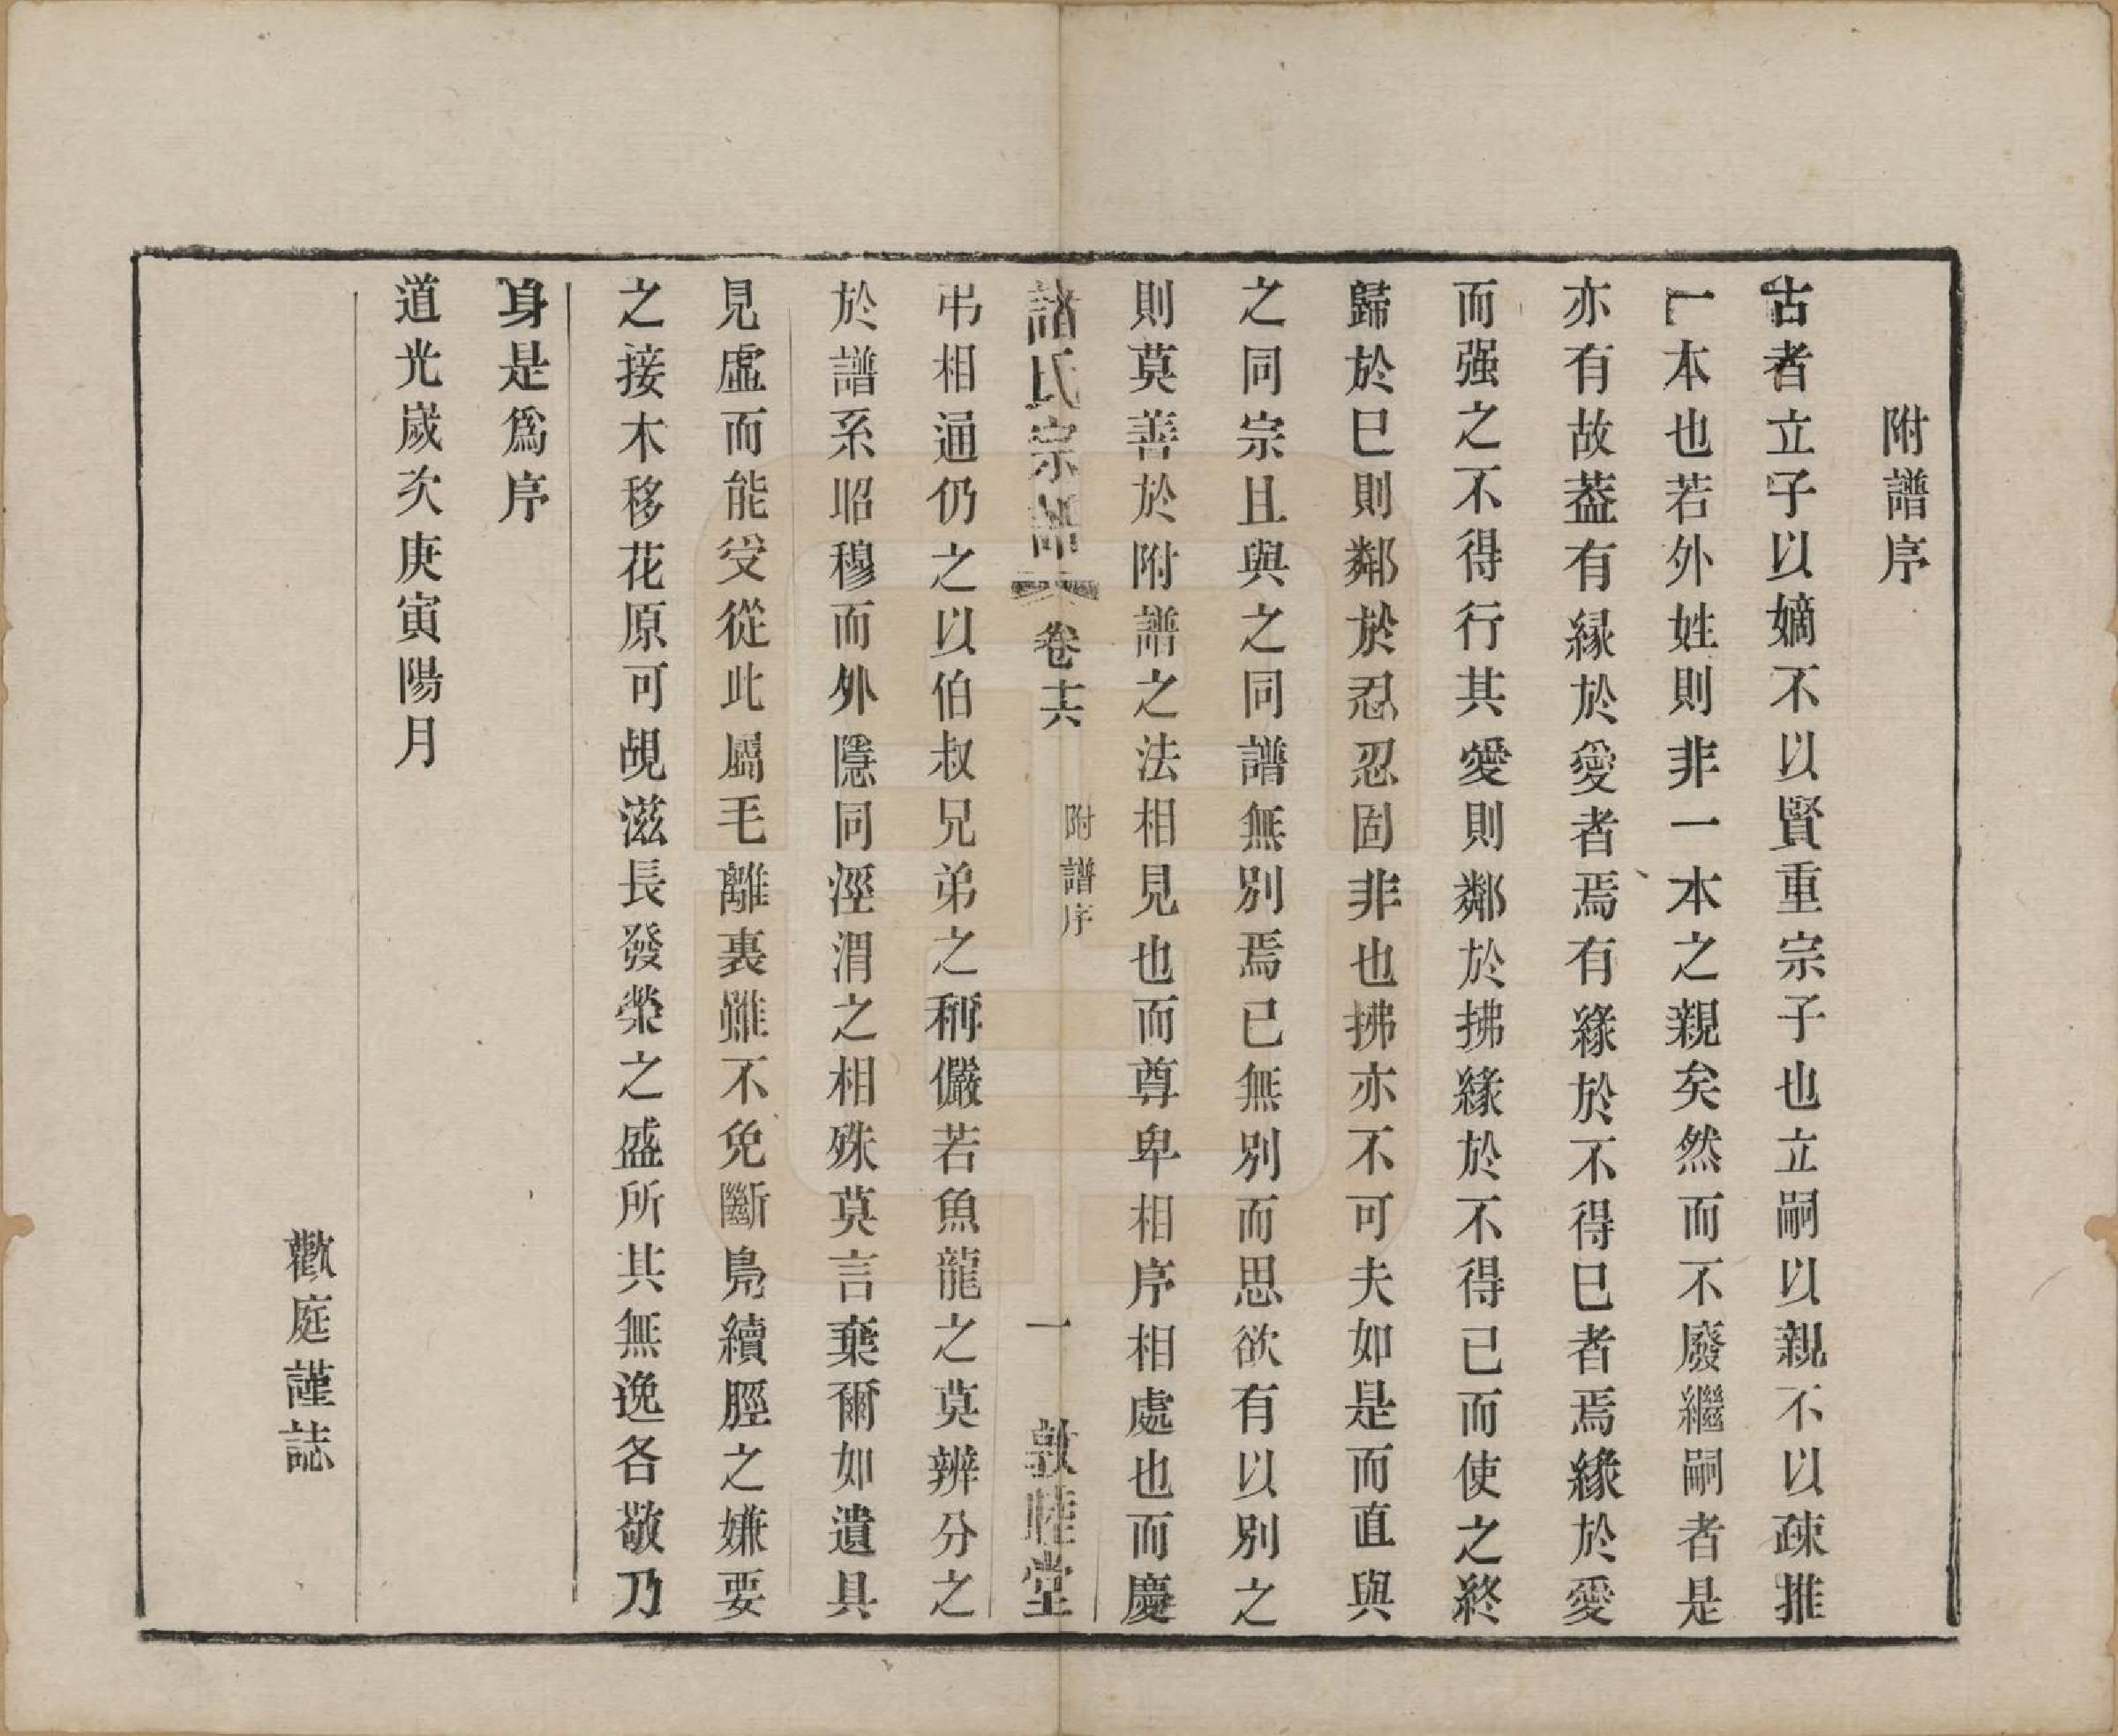 附譜序
古者立子以嫡不以賢重宗子也立嗣以親不以疎推
一本也若外姓則非一本之親矣然而不廢繼嗣者是
亦有故葢有緣於愛者焉有緣於不得已者焉緣於愛
而强之不得行其愛則鄰於拂緣於不得已而使之終
歸於已則鄰於忍忍固非也拂亦不可夫如是而直與
之同宗且與之同譜無別焉已無別而思欲有以別之
則莫善於附譜之法相見也而尊卑相序相處也而慶
諸氏宗譜 卷十六 附譜序 一 敦睦堂
弔相通仍之以伯叔兄弟之稱儼若魚龍之莫辨分之
於譜系昭穆而外隱同涇渭之相殊莫言棄爾如遺具
見虛而能受從此屬毛離裏雖不免斷鳧續脛之嫌要
之接木移花原可覘滋長發榮之盛所其無逸各敬乃
身是爲序
道光歲次庚寅陽月
歡庭謹誌